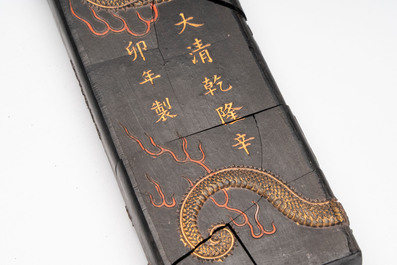 大清乾隆辛
卯年製